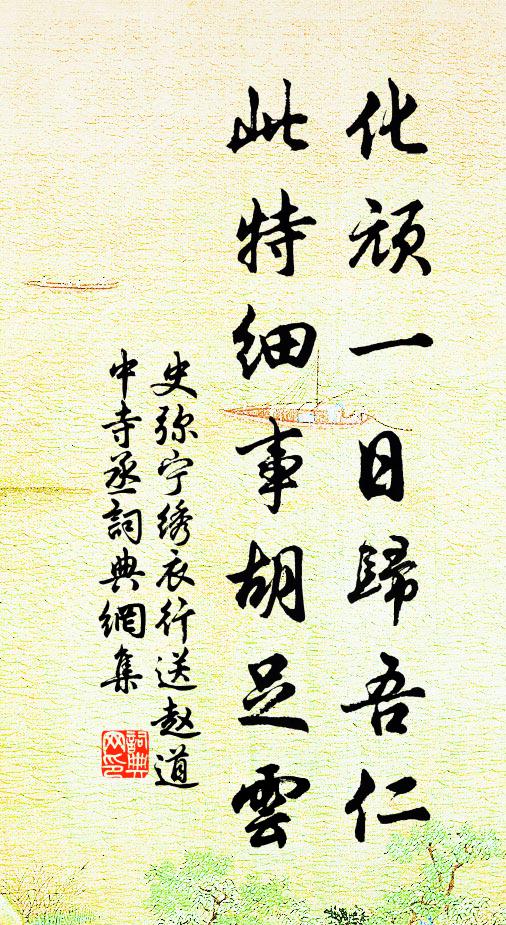 化頑一日歸吾仁
此特細事胡足雲
史弥宁绣衣行送赵道
中寺丞詞典網集
詞典
网印